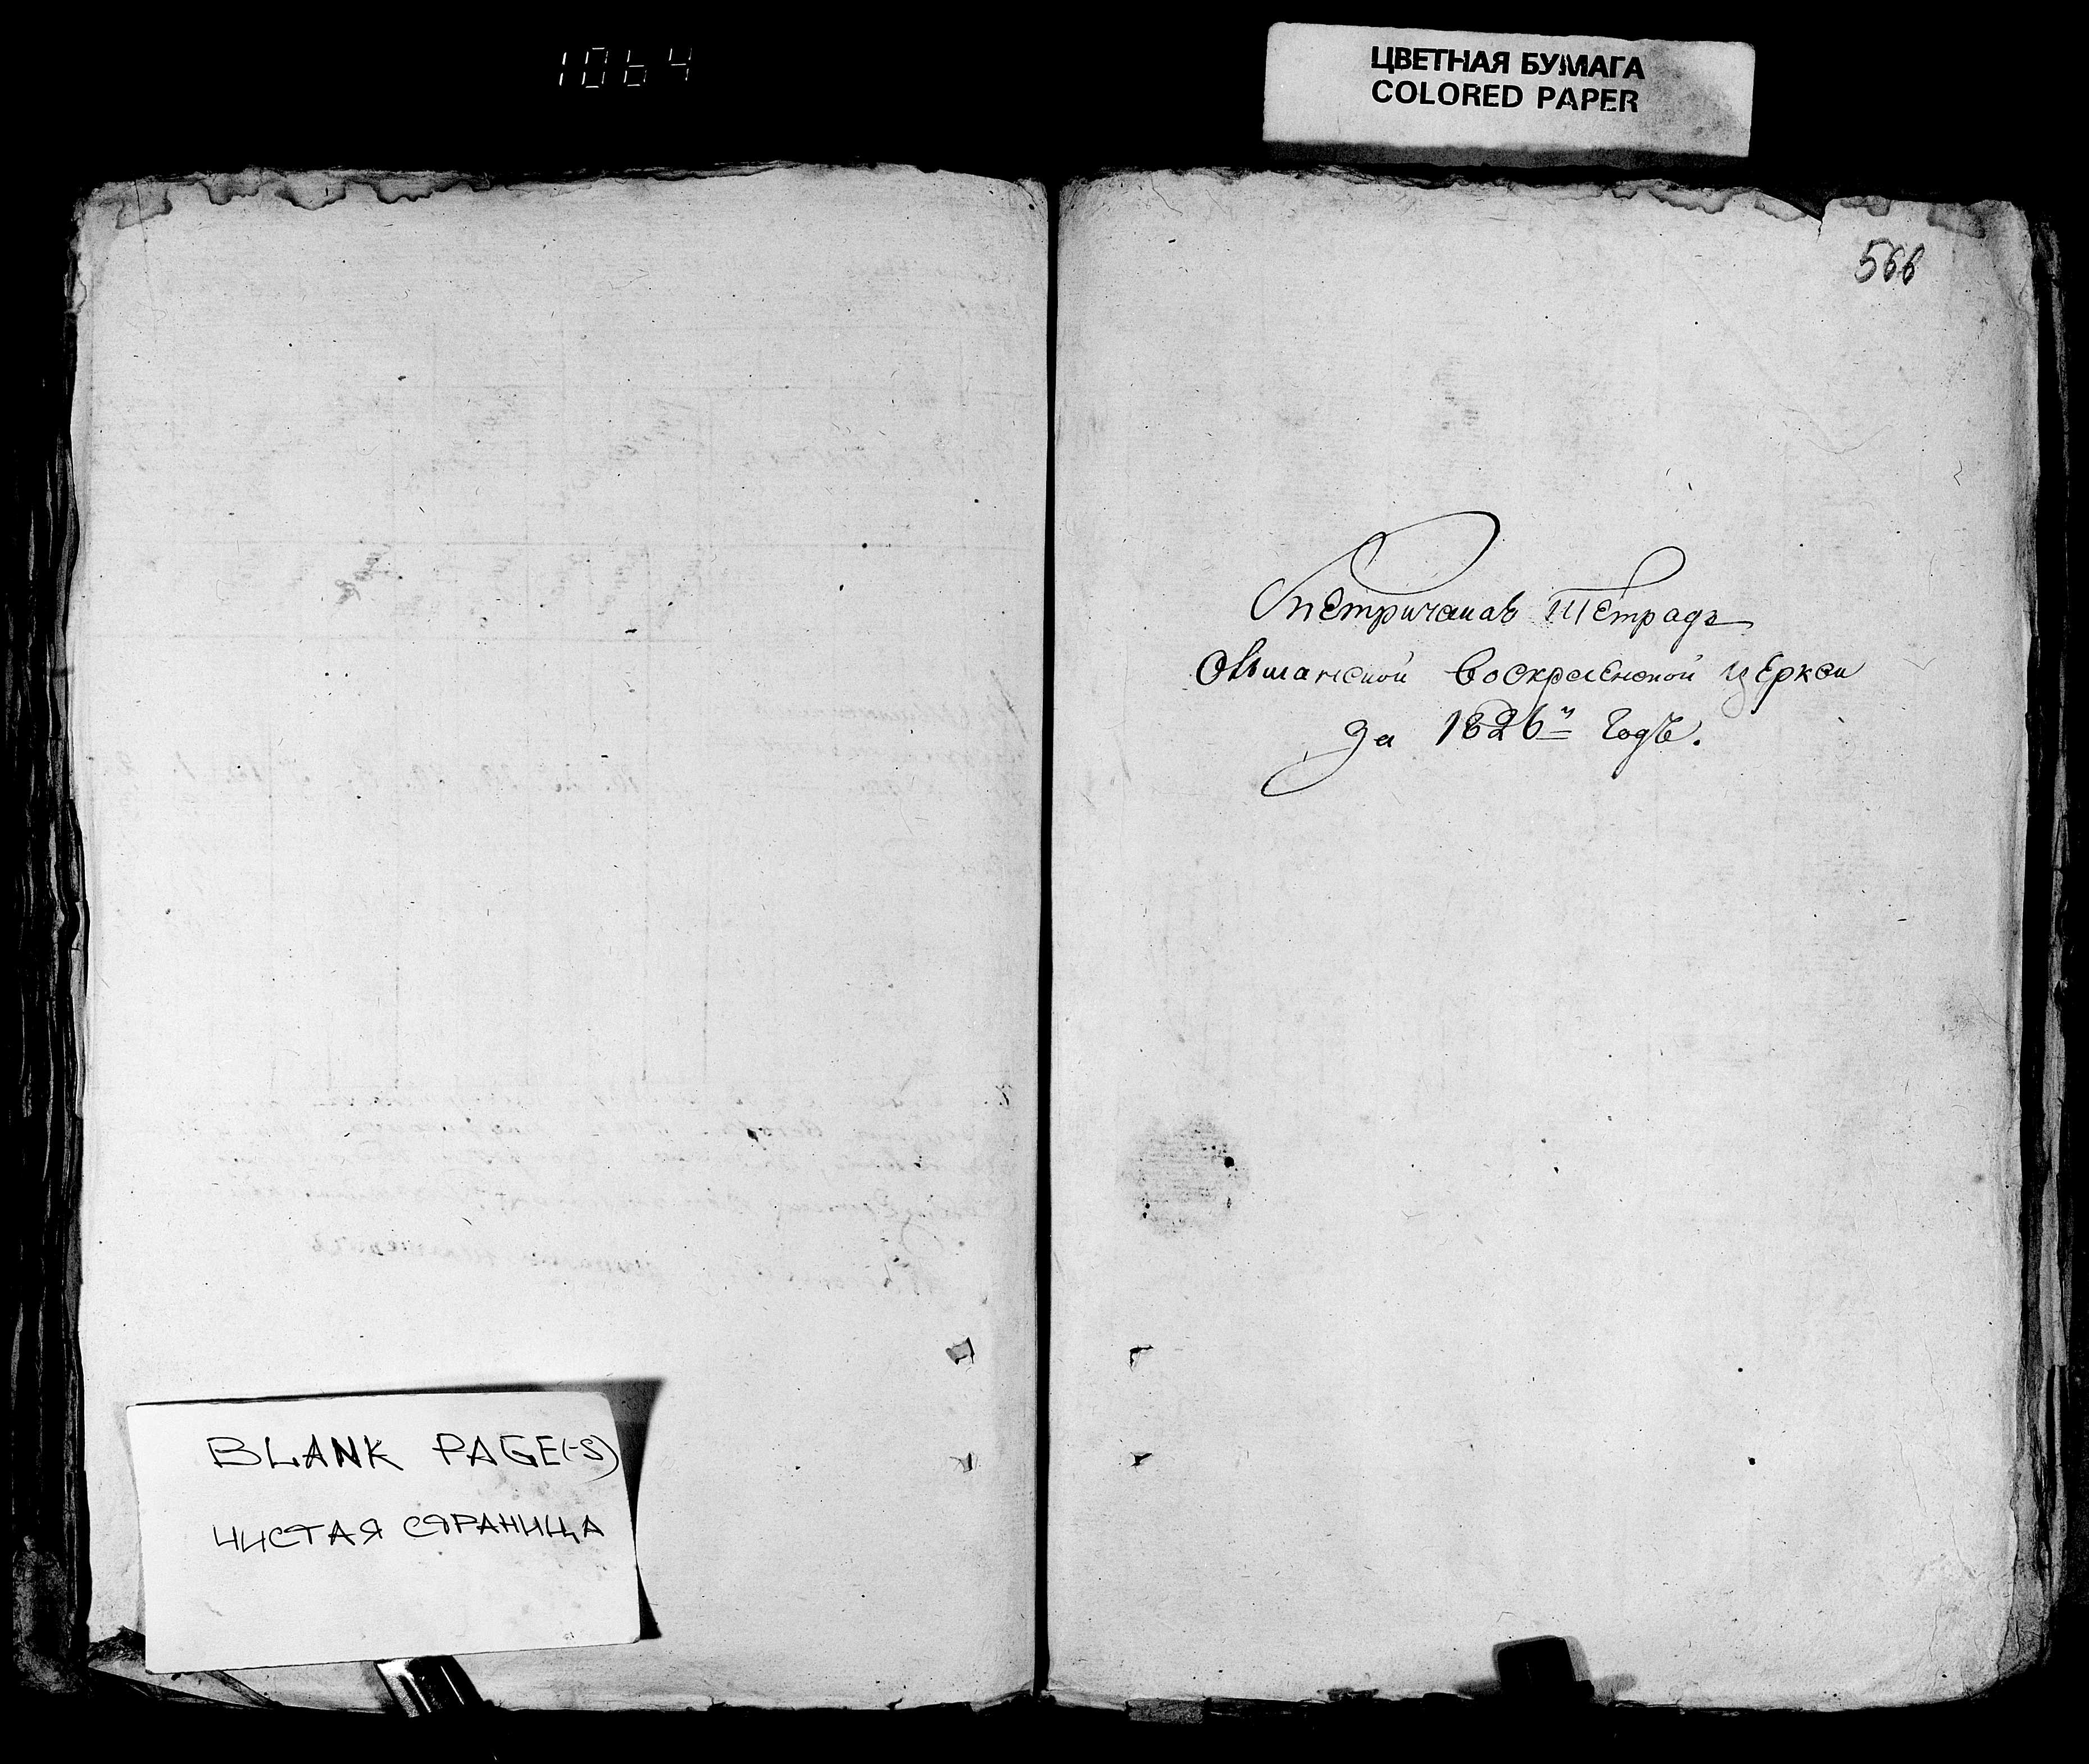 1064
ЦВЕТНАЯ БУМАГА
COLORED PAPER
566
Метричная Тетрадь
Ольшанской Воскресенской церкви
за 1826й Годъ.
BLANK PAGE(-S)
ЧИСТАЯ СТРАНИЦА